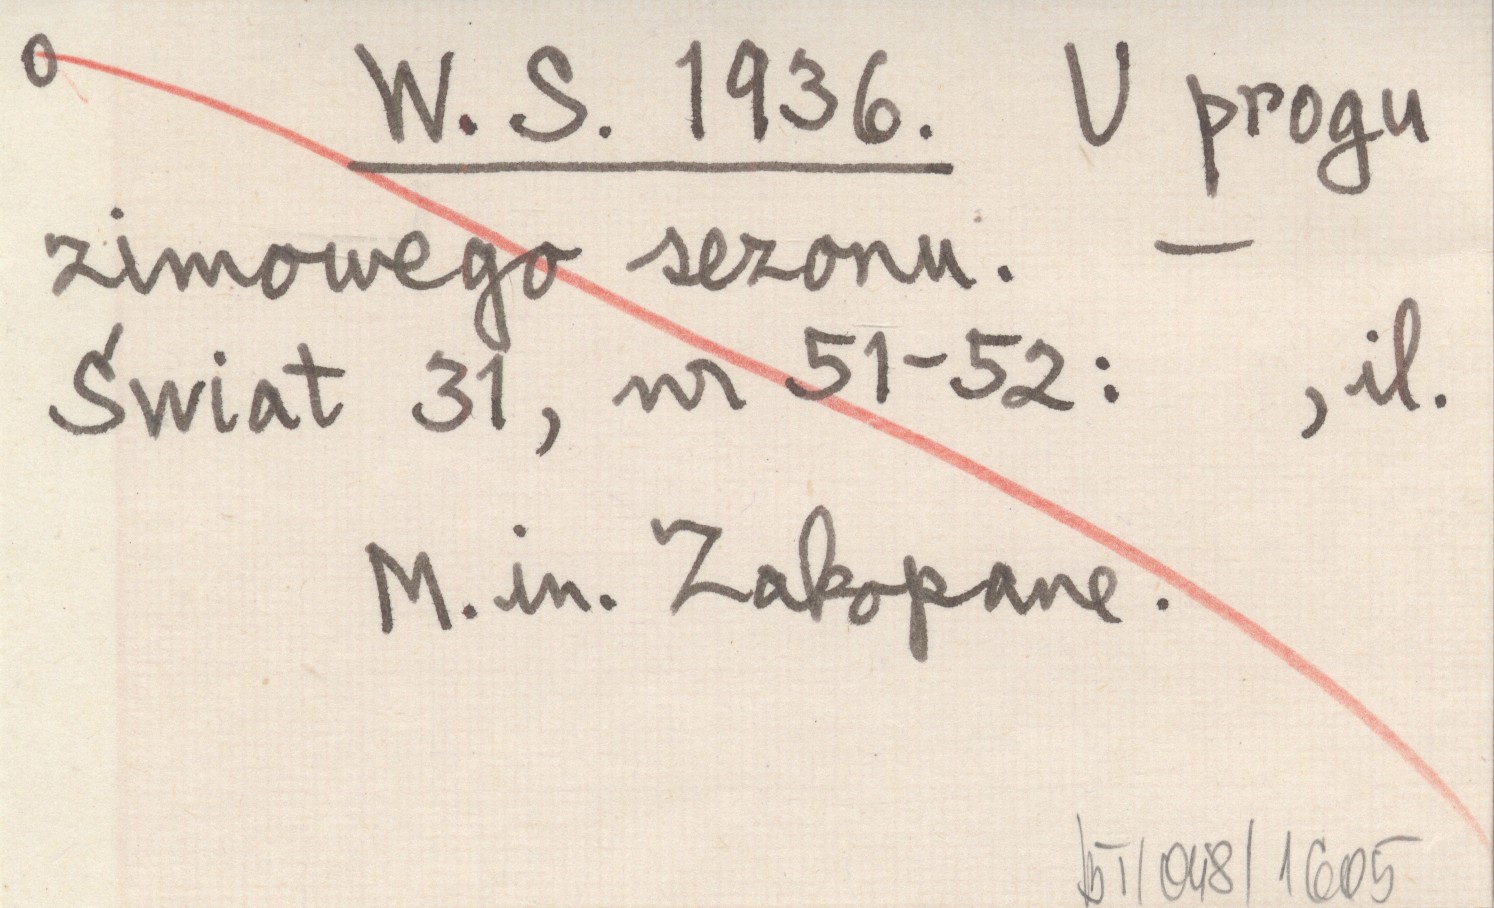 O W. S. 1936. U progu
zimowego sezonu. —
Świat 31, nr 51-52: , il.
M. in. Zakopane.
/048/1605